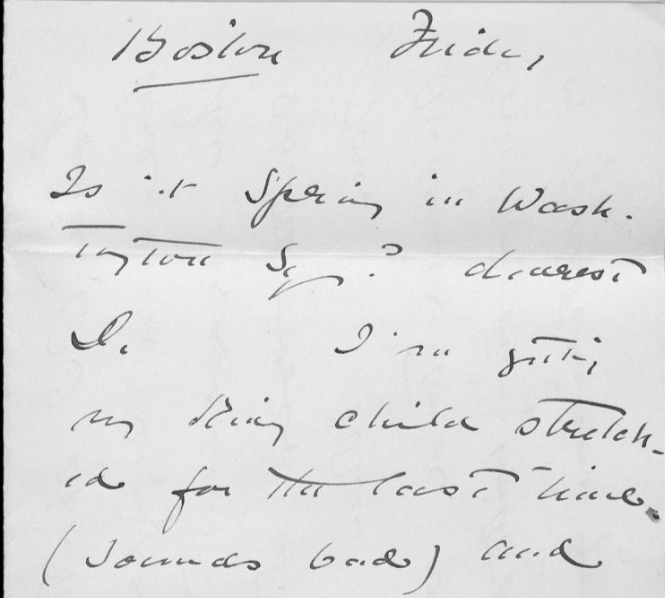 Boston Friday
Is it Spring in Wash-
ington Sq? dearest
Di I'm getting
my child stretch-
ed for the last time.
(sounds bad) and